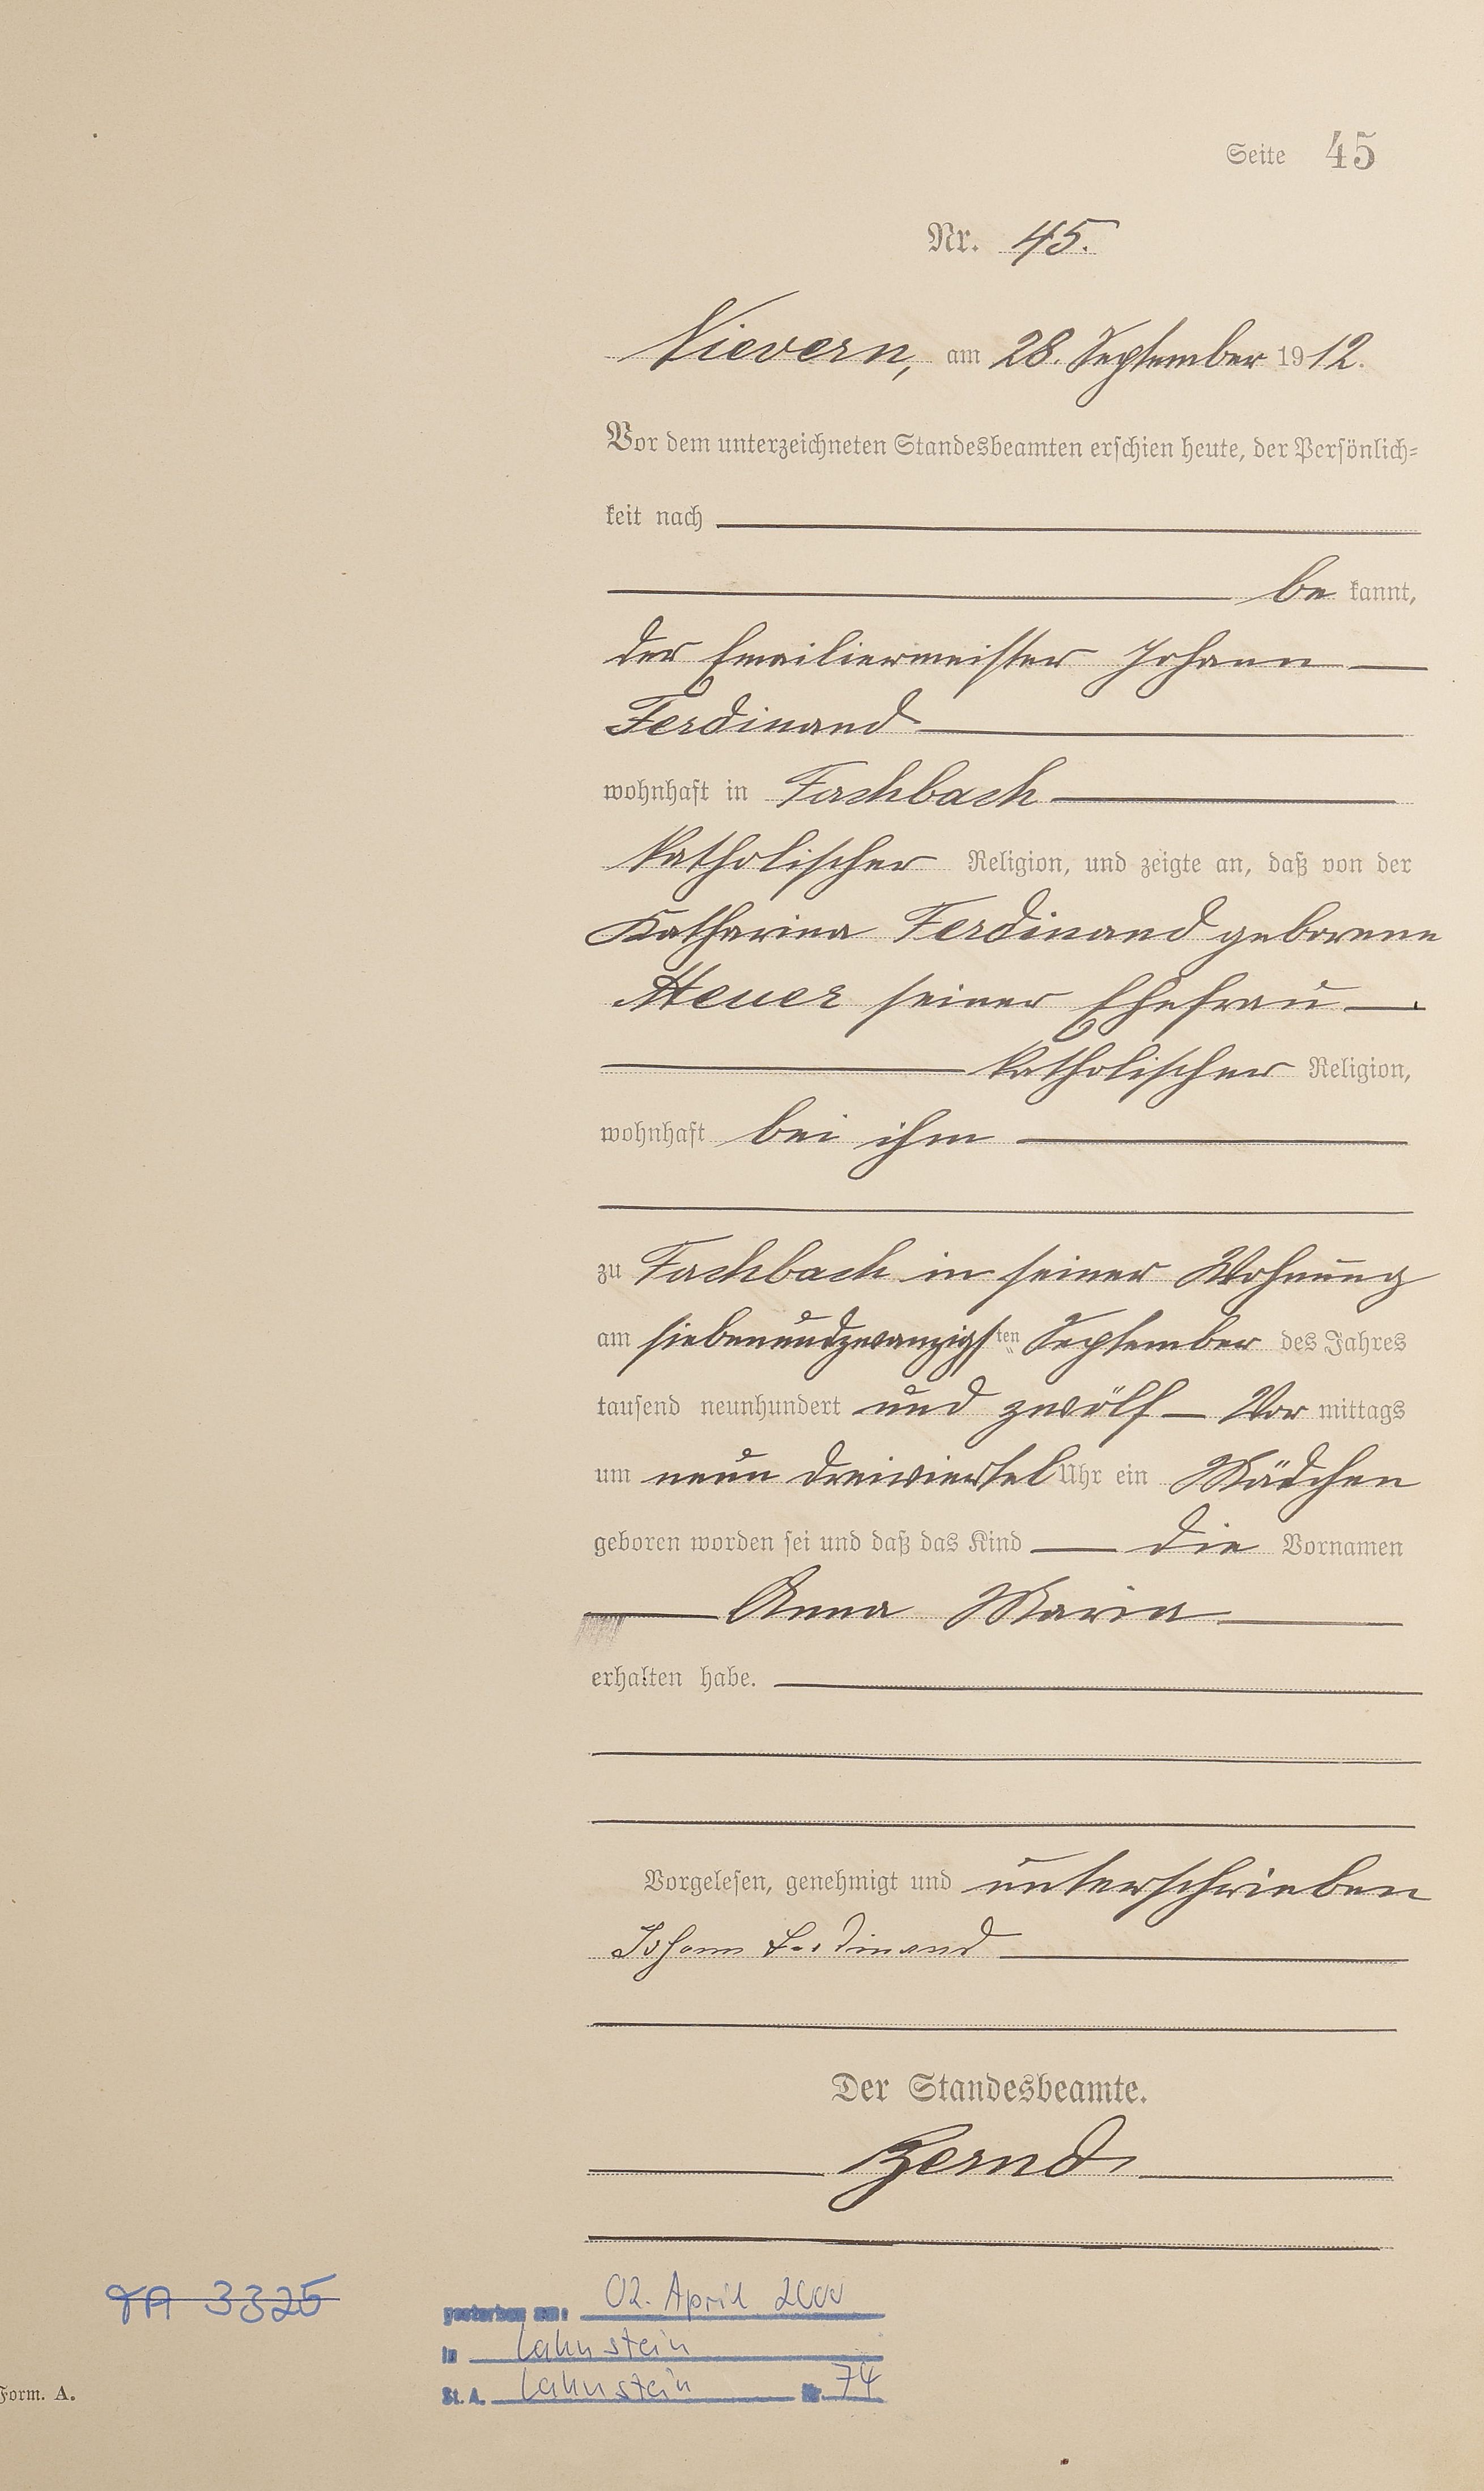 Seite 45
Nr. 45.
Nievern, am 28. September 1912.
Vor dem unterzeichneten Standesbeamten erschien heute, der Persönlich=
keit nach
be kannt,
der Emailiermeister Johann
Ferdinand
wohnhaft in Fachbach
katholischer Religion, und zeigte an, daß von der
Katharina Ferdinand geborene
Heuer seiner Ehefrau
katholischer Religion,
wohnhaft bei ihm
zu Fachbach in seiner Wohnung
am siebenundzwanzigsten September des Jahres
tausend neunhundert und zwölf Vor mittags
um neun dreiviertel Uhr ein Mädchen
geboren worden sei und daß das Kind die Vornamen
Anna Maria
erhalten habe.
Vorgelesen, genehmigt und unterschrieben
Johann Ferdinand
Der Standesbeamte.
3325
gestorben am: 02. April 2000
in Lahnstein
St. A. Lahnstein Nr. 74
Form. A.